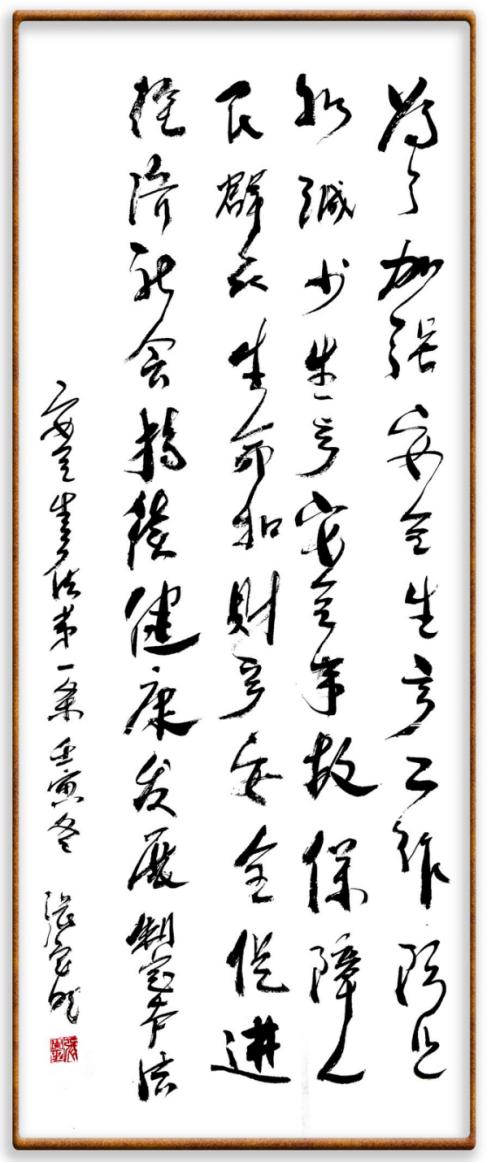 为了加强安全生产工作防止
和减少生产安全事故保障人
民群众生命和财产安全促进
经济社会持续健康发展制定本法
安全生产法第一条 壬寅冬